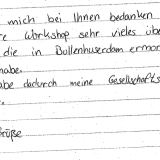 mich bei Ihnen bedanken
Workshop sehr vieles übe
die in Dollenhuserdam ermor
habe.
abe dadurch meine Gesellschafts
Grüße